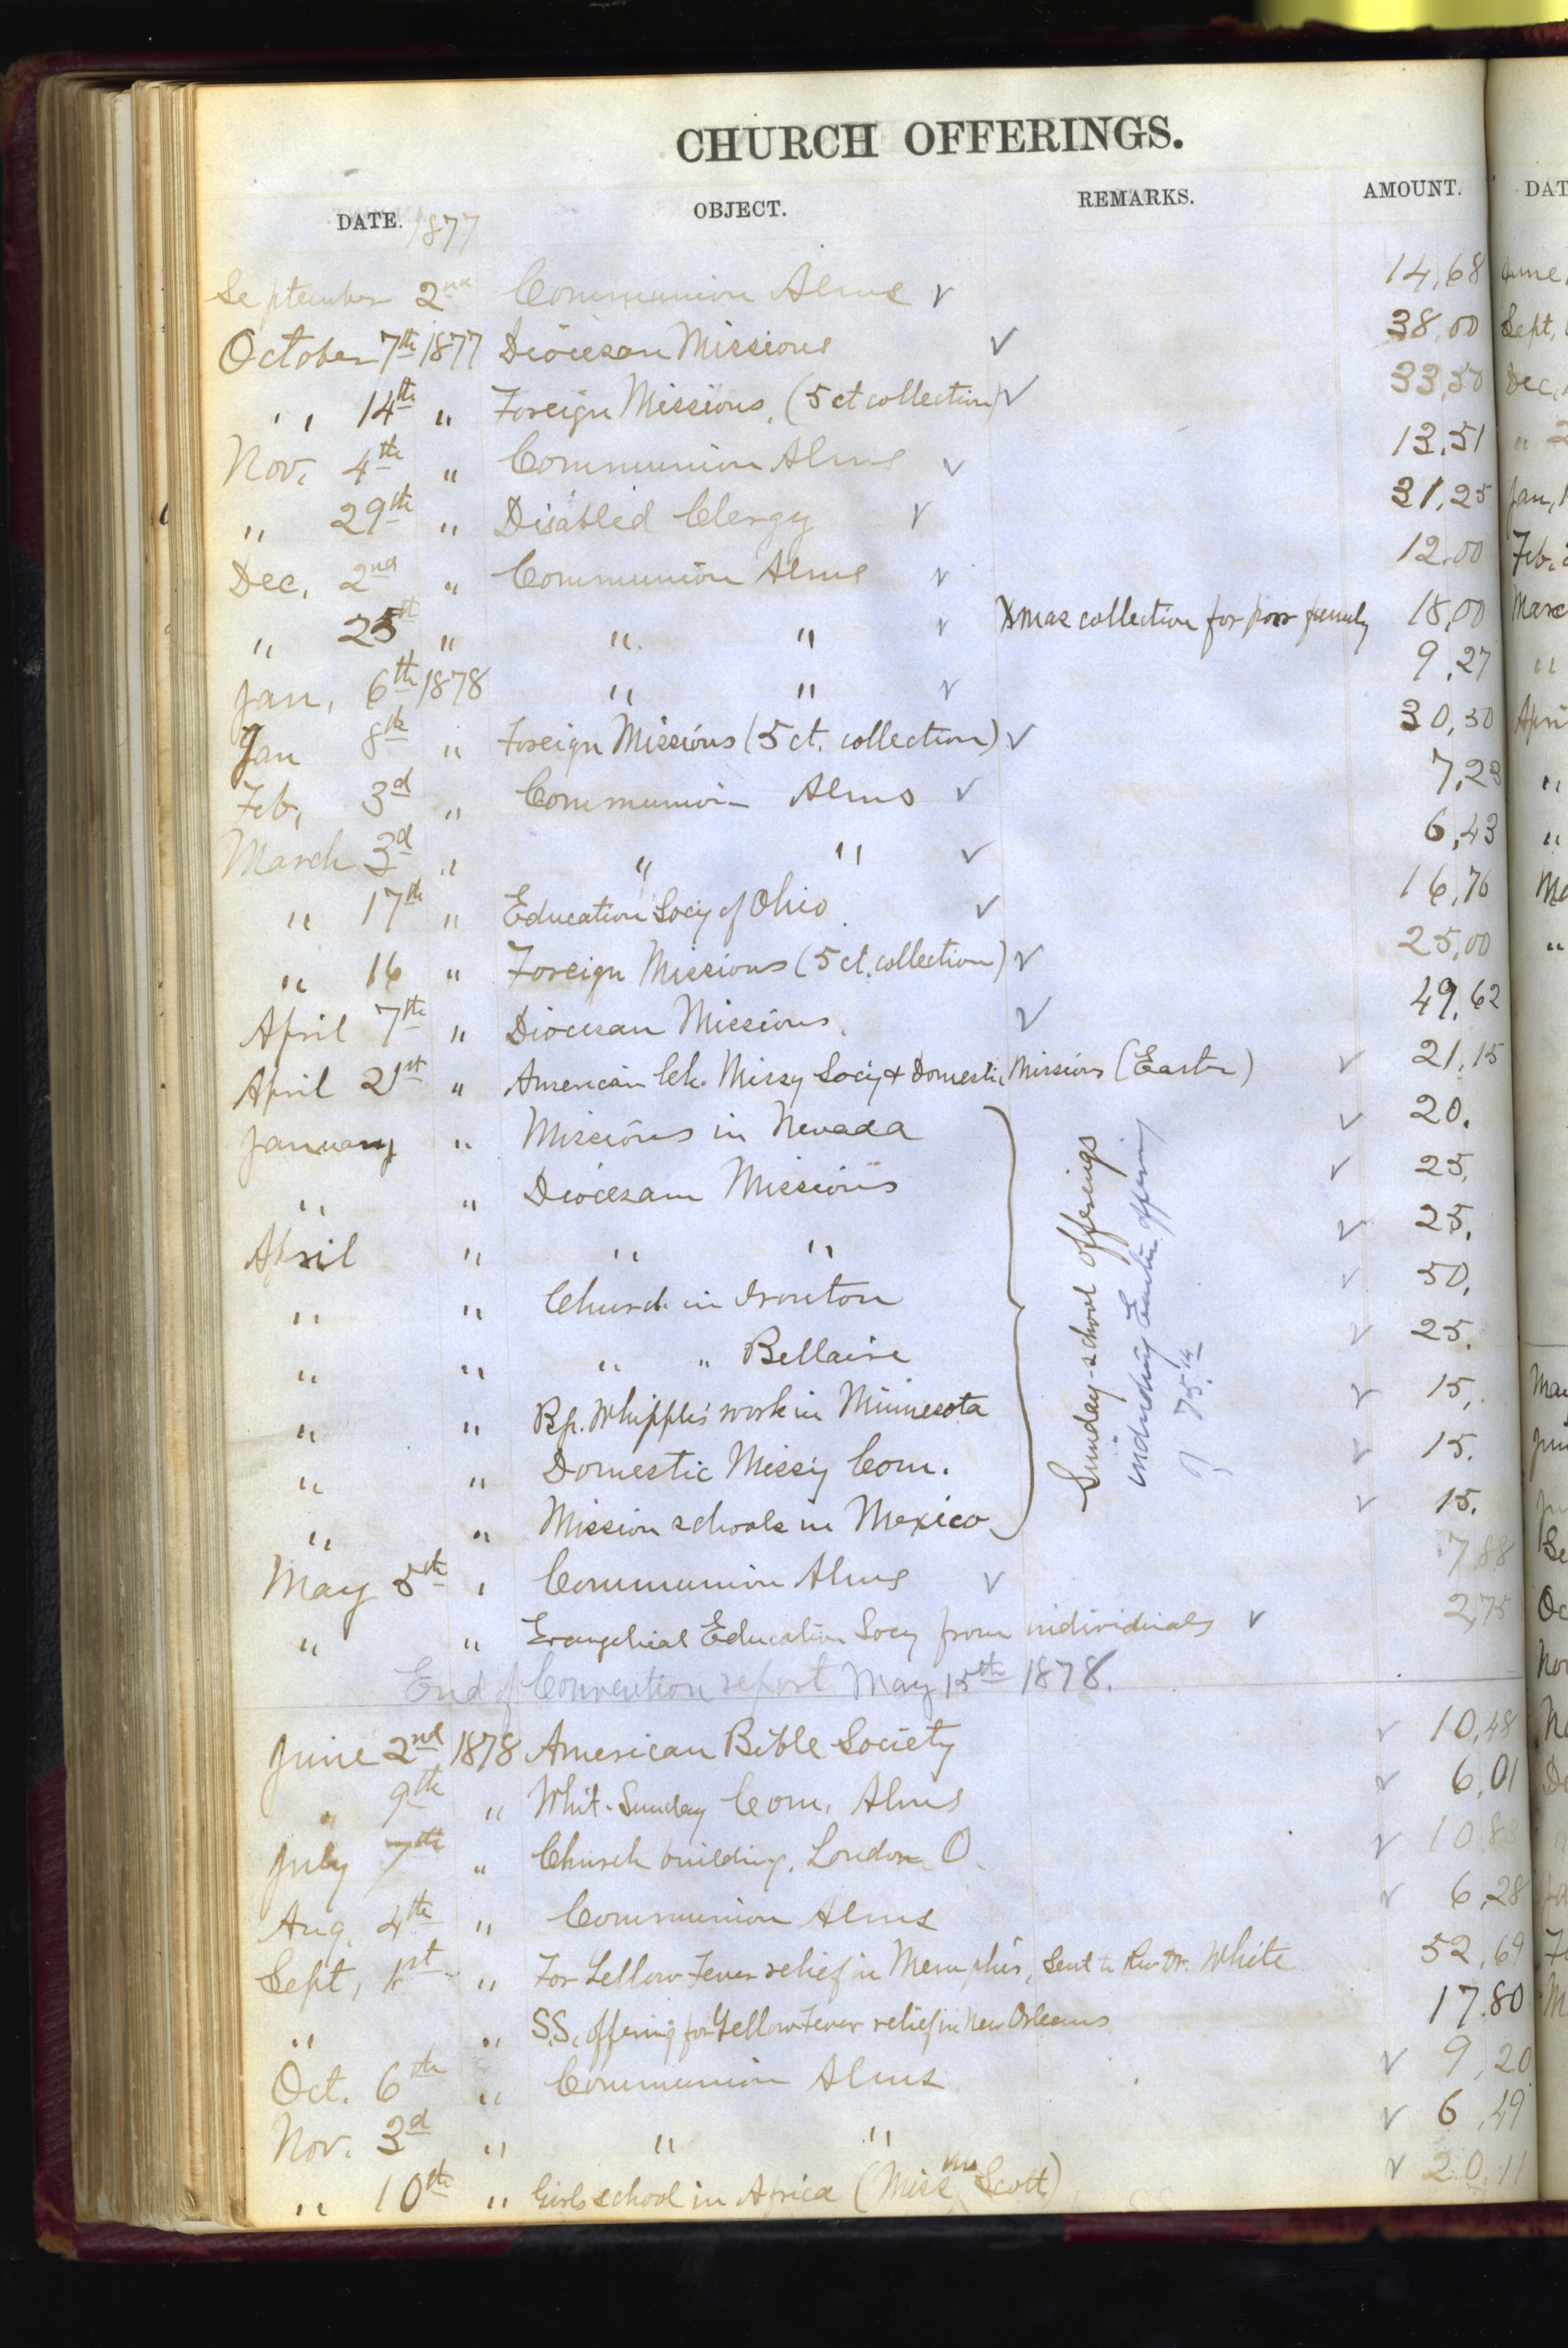 CHURCH OFFERINGS.
DATE. 1877 OBJECT. REMARKS. AMOUNT.
September 2nd Communion Alms √ 14,68
October 7th 1877 Diocesan Missions √ 38,00
" 14th " Foreign Missions, (5 ct collection) √ 33,50
Nov. 4th " Communion Alms √ 13,51
" 29th " Disabled Clergy √ 31,25
Dec, 2nd " Communion Alms √ 12.00
" 25th " " " √ Xmas collection for poor family 18,00
Jan, 6th 1878 " " √ 9,27
Jan 8th " Foreign Missions (5 ct. collection) √ 30,50
Feb, 3d " Communion Alms √ 7,23
March 3d " " " √ 6,43
" 17th " Education Socy of Ohio √ 16,76
" 16 " Foreign Missions (5 ct. collection) √ 25,00
April 7th " Diocesan Missions. √ 49,62
April 21st " American Ch. Missy Socy & Domestic Missions (Easter) √ 21,15
January " Missions in Nevada √ 20.
" " Diocesan Missions √ 25.
April " " " √ 25.
" " Church in Ironton √ 50,
" " " " Bellaire √ 25.
" " Bp. Whipple's work in Minnesota √ 15,
" " Domestic Missy Com. √ 15.
" " Mission schools in Mexico √ 15.
Sunday-school offerings
including Easter offering
of 75.14
May 5th " Communion Alms √ 7,88
" " Evangelical Education Socy from individuals √ 2,75
End of Convention report May 15th 1878.
June 2nd 1878 American Bible Society √ 10,48
" 9th " Whit-Sunday Com, Alms √ 6,01
July 7th " Church building, London O. √ 10,8
Aug. 4th " Communion Alms √ 6,28
Sept, 1st " For Yellow Fever relief in Memphis, Sent to Rev Dr. White 52,69
" " S.S. offering for Yellow Fever relief in New Orleans 17.80
Oct. 6th " Communion Alms √ 9,20
Nov. 3d " " " √ 6,49
" 10th " Girls school in Africa (Miss Scott) √ 20,11